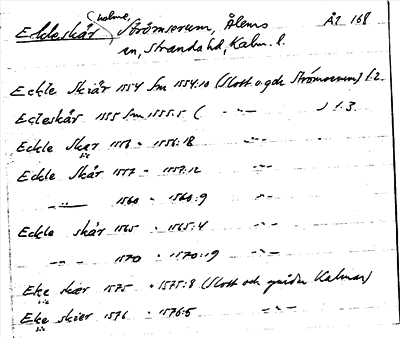 Eckleskär (holme, Strömserum, Ålems Ål 168
sn, Stranda hd, Kalm. l.
Eckle Skiär 1554 Sm 1554:10 (Slott o. gde Strömserum) f. 2.
Ecleskär 1555 Sm 1555:5 ( -"- ) f. 3.
Eckle Skär 1556 " 1556:18 -"-
sic
Eckle Skär 1557 " 1557:12 -"-
-"- 1560 " 1560:9 -"-
Eckle skär 1565 " 1565:4 -"-
-"- 1570 " 1570:19 -"-
Eke skær 1575 " 1575:8 (Slott och Kalmar)
sic
Eke skier 1576 " 1576:5 -"-
sic